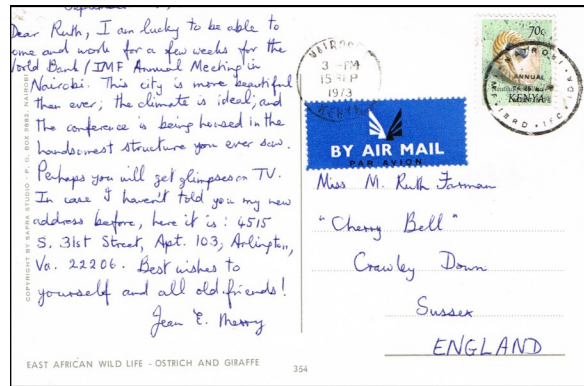 September
Dear Ruth, I am lucky to be able to
come and work for a few weeks for the
World Bank/IMF Annual Meeting in
Nairobi. This city is more beautiful
than ever; the climate is ideal; and
the conference is being housed in the
handsomest structure you ever saw.
Perhaps you will get glimpses on TV.
In case I haven't told you my new
address before, here it is: 4515
S. 31st Street, Apt. 103, Arlington,
Va. 22206. Best wishes to
yourself and all old friends!
Jean E. Merry
EAST AFRICAN WILD LIFE - OSTRICH AND GIRAFFE
COPYRIGHT BY SAPRA STUDIO - P. O. BOX 5882, NAIROBI
354
NAIROBI
3 - PM
15 SEP
1973
KENYA
70c
KENYA
NAIROBI
ANNUAL
IBRD · IFC · IDA
BY AIR MAIL
PAR AVION
Miss M. Ruth Farman
"Cherry Bell"
Crawley Down
Sussex
ENGLAND